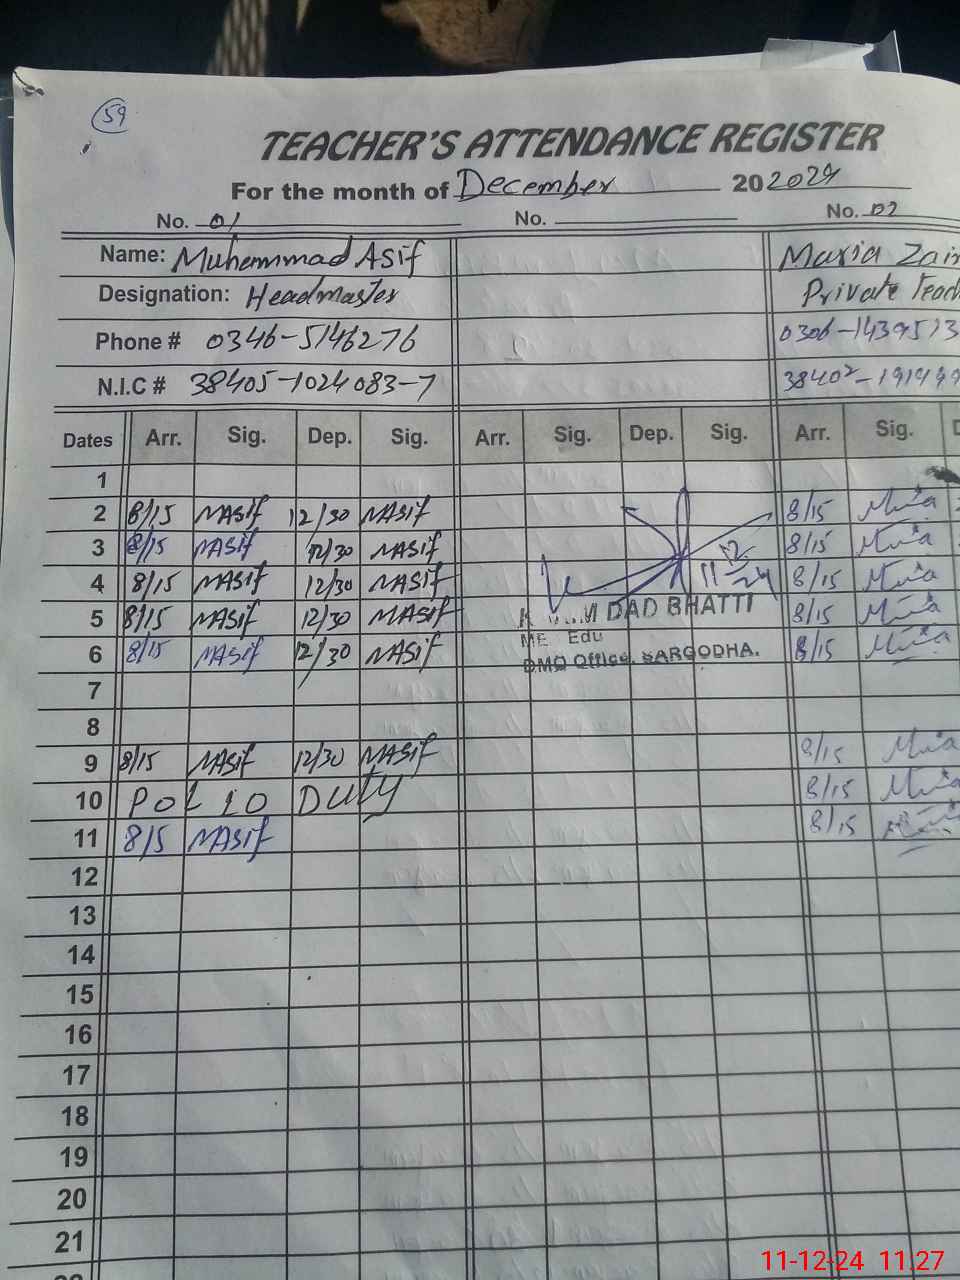 59
TEACHER'S ATTENDANCE REGISTER
For the month of December 202024
No. 01 No. No. 02
Name: Muhammad Asif Maria Zain
Designation: Headmaster Private Teac
Phone # 0346-5146276 0306-1439513
N.I.C # 38405-1024083-7 38402-191499
Dates Arr. Sig. Dep. Sig. Arr. Sig. Dep. Sig. Arr. Sig. D
1
2 8/15 MASif 12/30 MASif 8/15
3 8/15 MASif 12/30 MASif 8/15
4 8/15 MASif 12/30 MASif 11-12-24 8/15
5 8/15 MASif 12/30 MASif DAD BHATTI 8/15
6 8/15 MASif 12/30 MASif ME Edu 8/15
DMO Office, SARGODHA.
7
8
9 8/15 MASif 12/30 MASif 8/15
10 POLIO DUTY 8/15
11 8/5 MASif 8/15
12
13
14
15
16
17
18
19
20
21
11-12-24 11.27